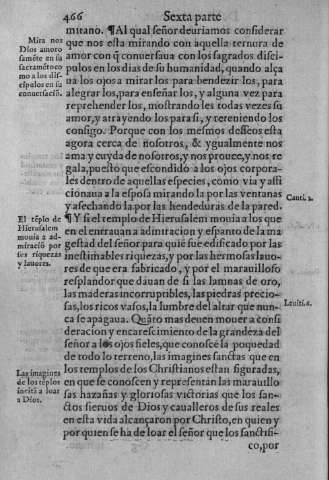 466 Sexta parte
mirano. ¶Al qual señor deuriamos considerar
Mira nos
Dios amoro
samẽte en su
sacramẽto co
mo a los dis-
cipulos en su
conuersaciõ.
que nos esta mirando con aquella ternura de
amor con q̃ conuersaua con los sagrados disci-
pulos en los dias de su humanidad, quando alça
ua los ojos a mirar los para bendezir los, para
alegrar los, para enseñar los, y alguna vez para
reprehender los, mostrando les todas vezes su
amor, y atrayendo los para si, y teneniendo los
consigo. Porque con los mesmos desseos esta
agora cerca de nosotros, & ygualmente nos
ama y cuyda de nosotros, y nos prouee, y nos re
gala, puesto que escondido a los ojos corpora-
les dentro de aquellas especies, como via y affi
cionaua a la esposa mirando la por las ventanas
Canti. 2.
y afechando la por las hendeduras de la pared.
El tẽplo de
Hierusalem
mouia a ad-
miraciõ por
sus riquezas
y lauores.
¶Y si el templo de Hierusalem mouia a los que
en el entrauan a admiracion y espanto de la ma
gestad del señor para quiẽ fue edificado por las
inestimables riquezas, y por las hermosas lauo-
res de que era fabricado, y por el marauilloso
resplandor que dauan de si las lamnas de oro,
las maderas incorruptibles, las piedras precio-
sas, los ricos vasos, la lumbre del altar que nun-
Leuiti. 6.
ca se apagaua. Quãto mas deuen mouer a consi
deracion y encarescimiento de la grandeza del
señor a los ojos fieles, que conosce la poquedad
de todo lo terreno, las imagines sanctas que en
Las imagines
de los tẽplos
inuitã a loar
a Dios.
los templos de los Christianos estan figuradas,
en que se conoscen y representan las marauillo
sas hazañas y gloriosas victorias que los san-
ctos sieruos de Dios y caualleros de sus reales
en esta vida alcançaron por Christo, en quien y
por quien se ha de loar el señor que los sanctifi-
co, por